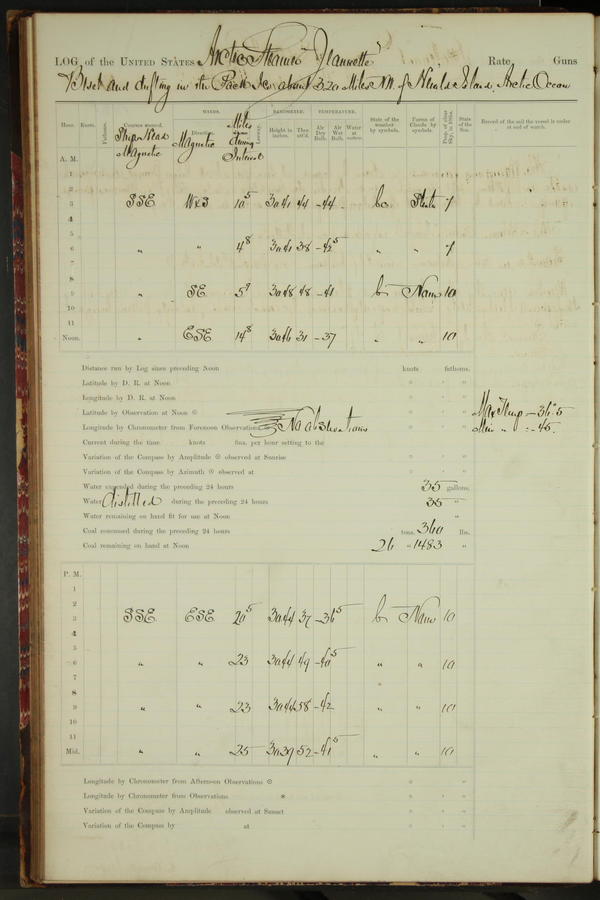 LOG of the UNITED STATES Arctic Steamer "Jeannette" Rate Guns
Beset and drifting in the Pack Ice, about 320 Miles NW. of Herald Island, Arctic Ocean
WINDS. BAROMETER. TEMPERATURE.
Hour. Knots. Fathoms. Courses steered. Direction. Leeway. Height in inches. Ther. att'd. Air Dry Bulb. Air Wet Bulb. Water at surface. State of the weather by symbols. Forms of Clouds by symbols. Prop. of clear Sky, in 10ths. State of the Sea. Record of the sail the vessel is under at end of watch.
Ship's Head Magnetic Magnetic Miles during Interval
A. M.
1
2
3 SSE WxS 10 5 30.41 44 -44 bc Strata 7
4
5
6 " " 4 8 30.41 38 -42 5 " " 7
7
8
9 " SE 5 9 30.48 48 -41 b None 10
10
11
Noon. " ESE 14 8 30.46 31 -37 " " 10
Distance run by Log since preceding Noon knots fathoms.
Latitude by D. R. at Noon ° ' "
Longitude by D. R. at Noon ° ' "
Latitude by Observation at Noon ⊙ ° ' " Max Temp -36.5
Longitude by Chronometer from Forenoon Observations No observations ° ' " Min " -45.
Current during the time knots fms. per hour setting to the
Variation of the Compass by Amplitude ⊙ observed at Sunrise ° ' "
Variation of the Compass by Azimuth ⊙ observed at ° ' "
Water expended during the preceding 24 hours 35 gallons.
Water distilled during the preceding 24 hours 35 "
Water remaining on hand fit for use at Noon "
Coal consumed during the preceding 24 hours tons. 360 lbs.
Coal remaining on hand at Noon 26 " 1483 "
P. M.
1
2
3 SSE ESE 20 5 30.44 37 -36 5 b None 10
4
5
6 " " 23 30.44 49 -40 5 " " 10
7
8
9 " " 23 30.44 58 -42 " " 10
10
11
Mid. " " 25 30.39 52 -41 5 " " 10
Longitude by Chronometer from Afternoon Observations ⊙ ° ' "
Longitude by Chronometer from Observations * ° ' "
Variation of the Compass by Amplitude observed at Sunset ° ' "
Variation of the Compass by at ° ' "